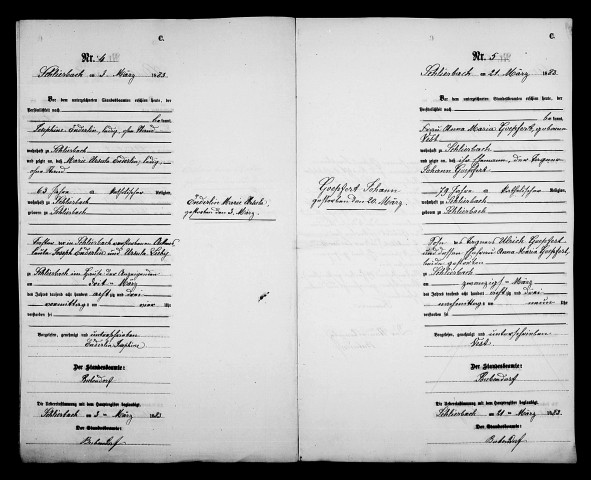 C.
Nr. 4
Schlierbach am 3. März 1883.
Vor dem unterzeichneten Standesbeamten erschien heute, der
Persönlichkeit nach
be kannt,
Josephine Enderlin, ledig, ohne Stand
wohnhaft zu Schlierbach
und zeigte an, daß Marie Ursula Enderlin, ledig,
ohne Stand
63 Jahre alt, katholischer Religion,
wohnhaft zu Schlierbach
geboren zu Schlierbach
Tochter der in Schlierbach verstorbenen Ackers
leute Joseph Enderlin und Ursula
zu Schlierbach im Hause der Anzeigenden
am drei ten März
des Jahres tausend acht hundert achtzig und drei
vormittags um Uhr
verstorben sei
Vorgelesen, genehmigt und unterschrieben
Enderlin Josephine
Der Standesbeamte:
Die Uebereinstimmung mit dem Hauptregister beglaubigt
Schlierbach am 3. März 1883.
Der Standesbeamte.
Enderlin Marie Ursula,
gestorben den 3. März.
Goepfert Johann
gestorben den 20. März.
C.
Nr. 5
Schlierbach am 21. März 1883.
Vor dem unterzeichneten Standesbeamten erschien heute, der
Persönlichkeit nach
be kannt,
Frau Anna Maria Goepfert, geborene
wohnhaft zu Schlierbach
und zeigte an, daß ihr Ehemann, der
Johann Goepfert
79 Jahre alt, katholischer Religion,
wohnhaft zu Schlierbach
geboren zu Schlierbach
Sohn des Ulrich Goepfert
und dessen Ehefrau Anna Maria Goepfert,
beide gestorben
zu Schlierbach
am zwanzigsten März
des Jahres tausend acht hundert achtzig und drei
nachmittags um neun Uhr
verstorben sei
Vorgelesen, genehmigt und unterschrieben
Der Standesbeamte:
Die Uebereinstimmung mit dem Hauptregister beglaubigt
Schlierbach am 21. März 1883.
Der Standesbeamte.